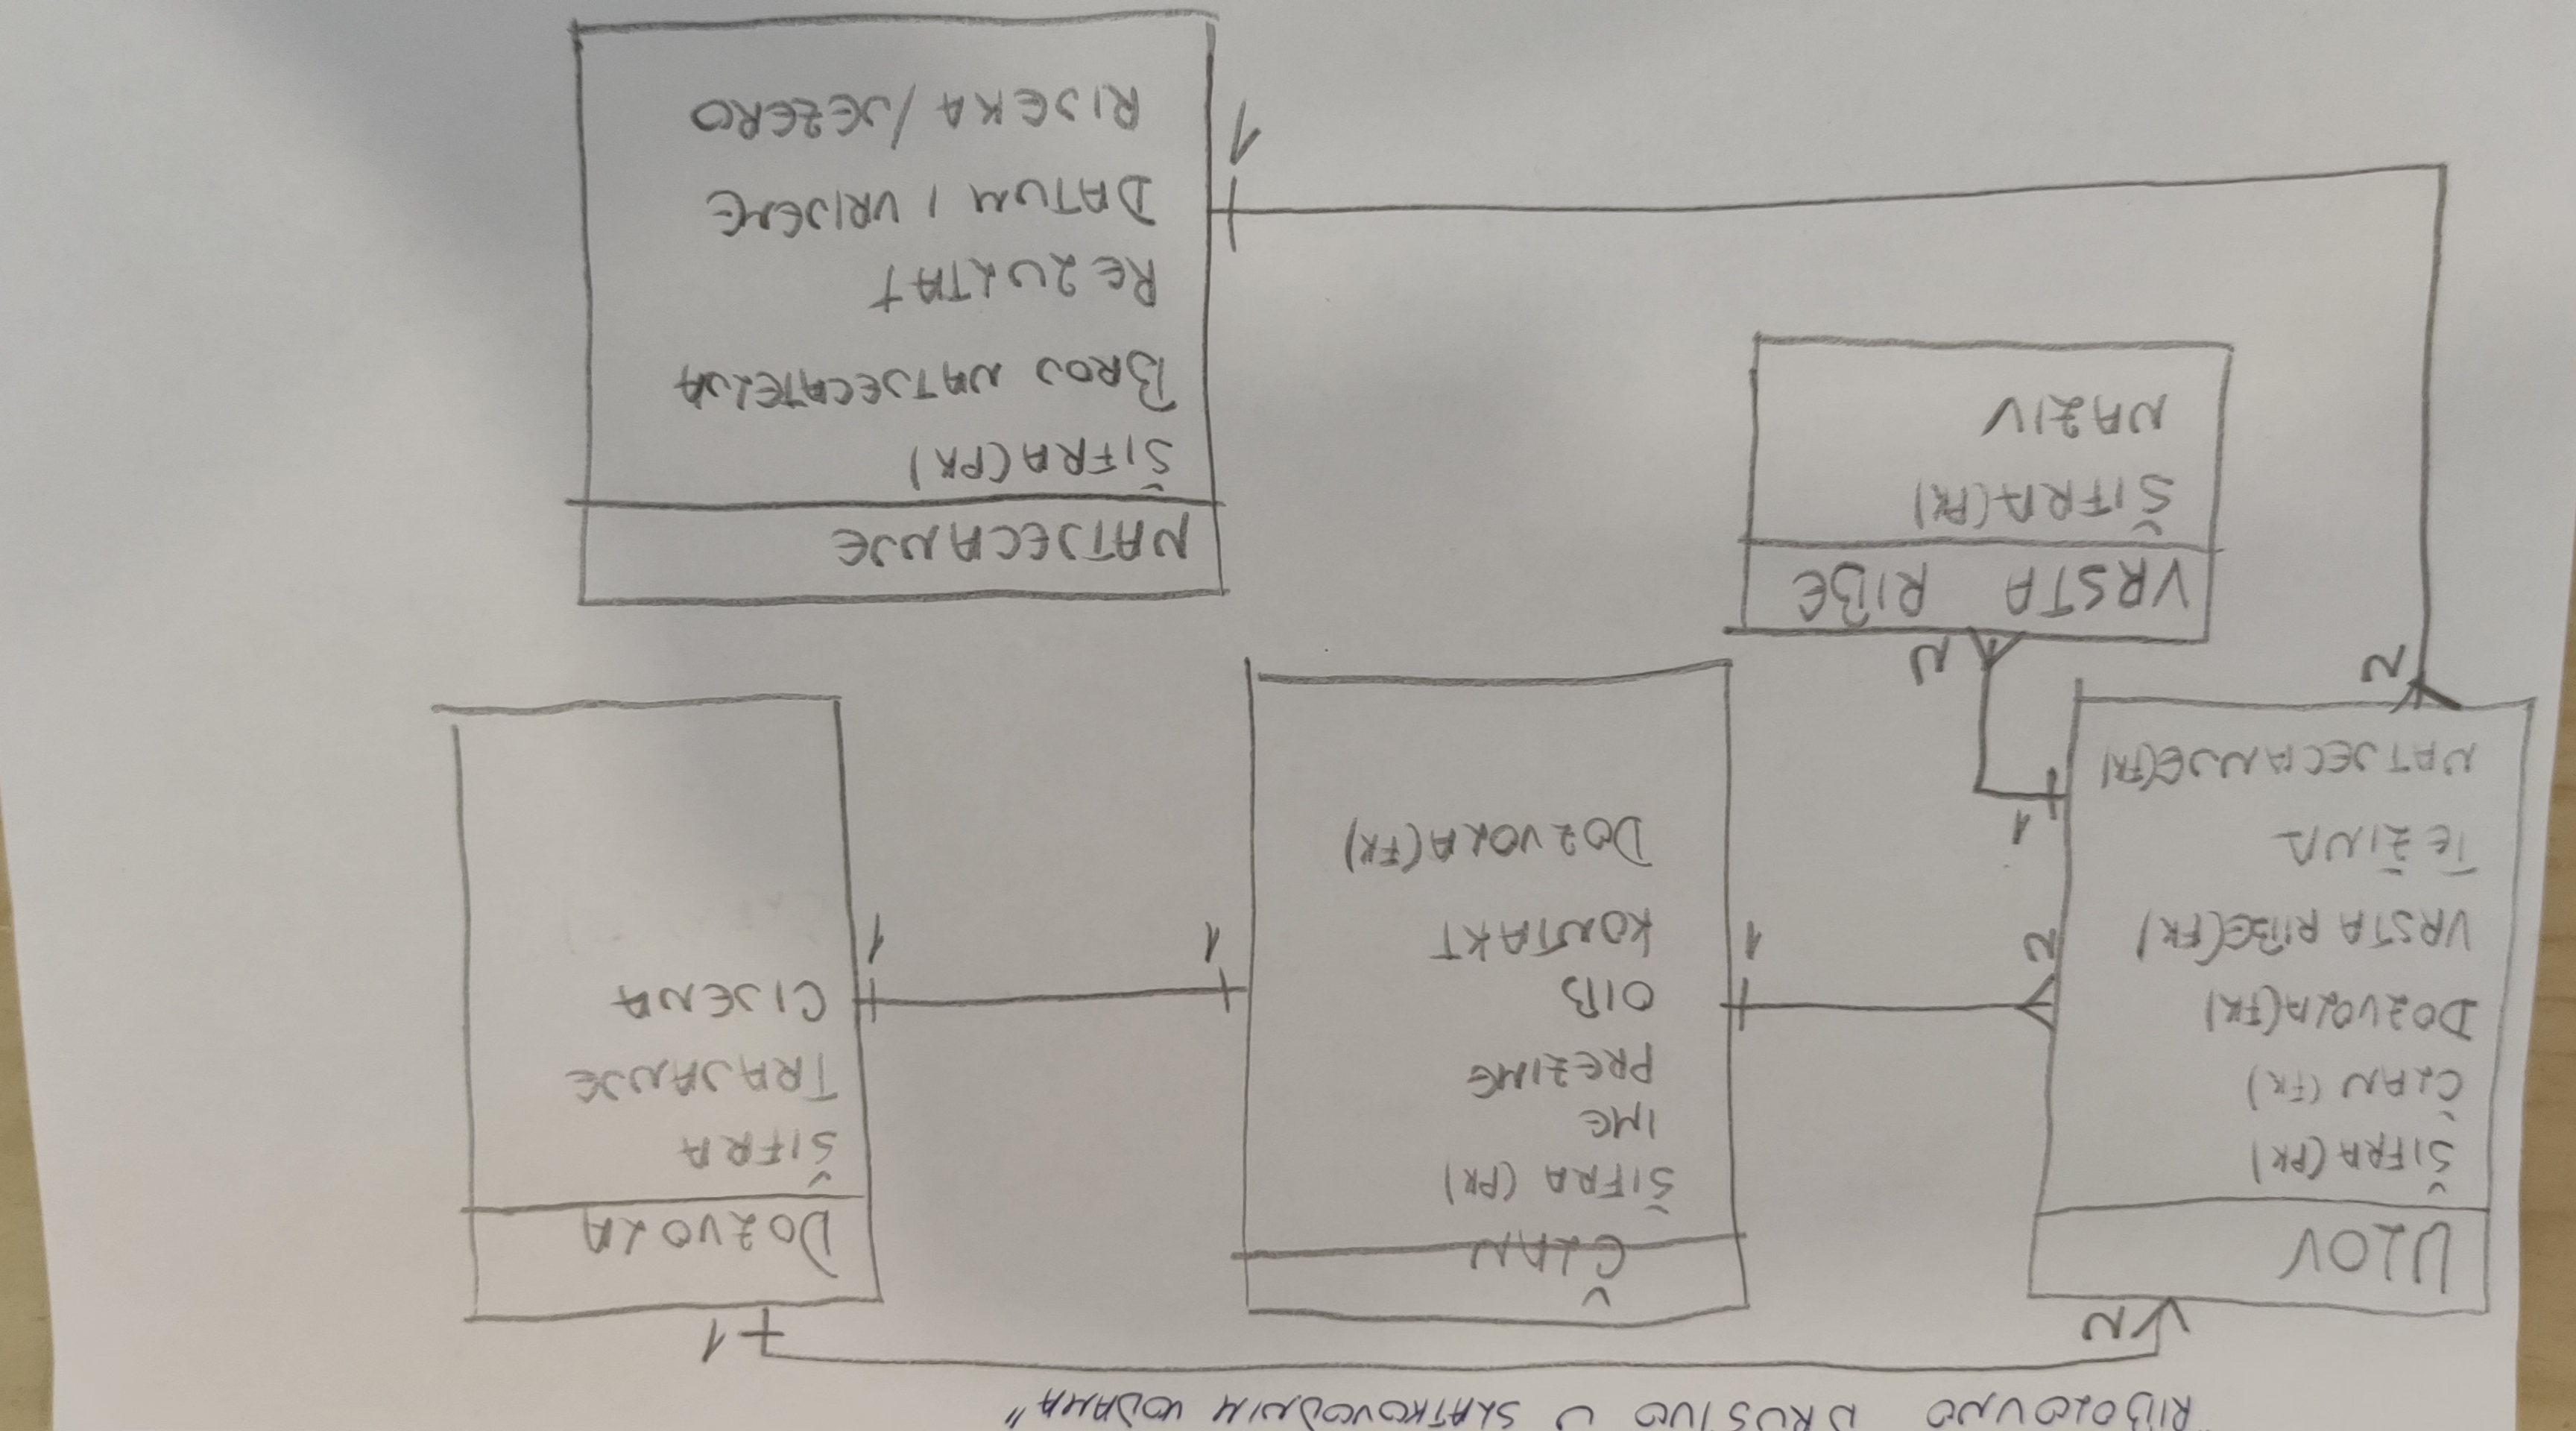 "RIBOLOVNO DRUŠTVO U SLATKOVODNIM VODAMA"
N
1
ULOV
ŠIFRA (PK)
ČLAN (FK)
DOZVOLA (FK)
VRSTA RIBE (FK)
TEŽINA
NATJECANJE (FK)
N
1
N
ČLAN
ŠIFRA (PK)
IME
PREZIME
OIB
KONTAKT
DOZVOLA (FK)
1
1
1
DOZVOLA
ŠIFRA
TRAJANJE
CIJENA
N
VRSTA RIBE
ŠIFRA (PK)
NAZIV
NATJECANJE
ŠIFRA (PK)
BROJ NATJECATELJA
REZULTAT
DATUM I VRIJEME
RIJEKA / JEZERO
1